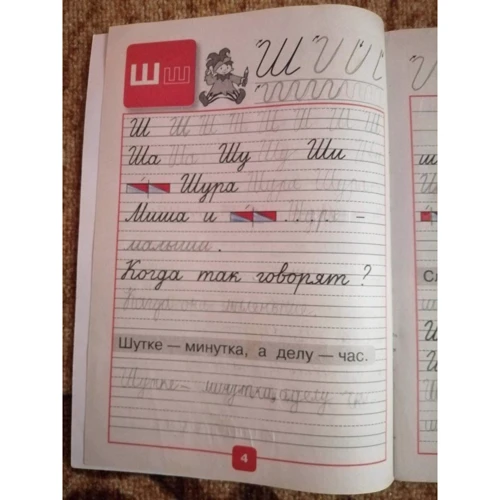 Ш ш Ш
Ш Ш Ш Ш Ш Ш Ш Ш
Ша Ша Шу Шу Ши
Шура Шура Шура
Миша и Шура –
малыши.
Когда так говорят?
Когда
Шутке — минутка, а делу — час.
Шутке – минутка, а делу
4